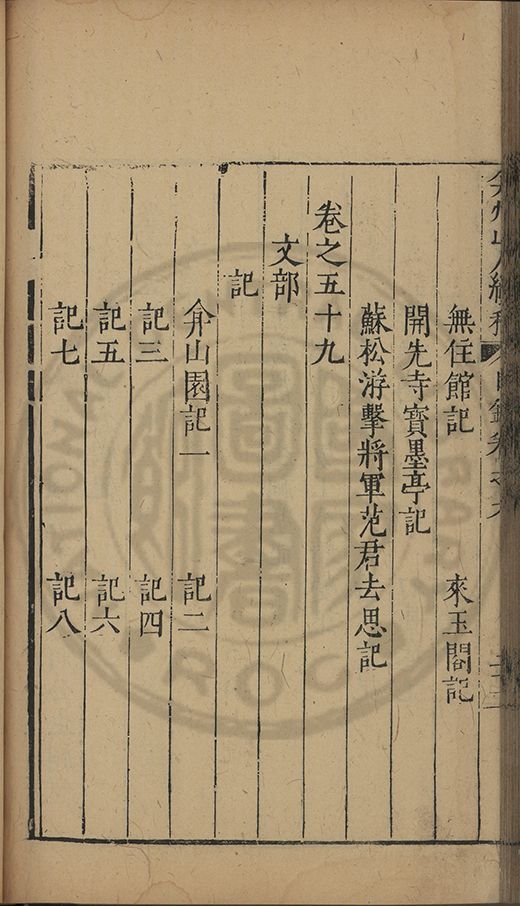 無住館記 來玉閣記
開先寺寶墨亭記
蘇松游擊將軍范君去思記
卷之五十九
文部
記
弇山園記一 記二
記三 記四
記五 記六
記七 記八